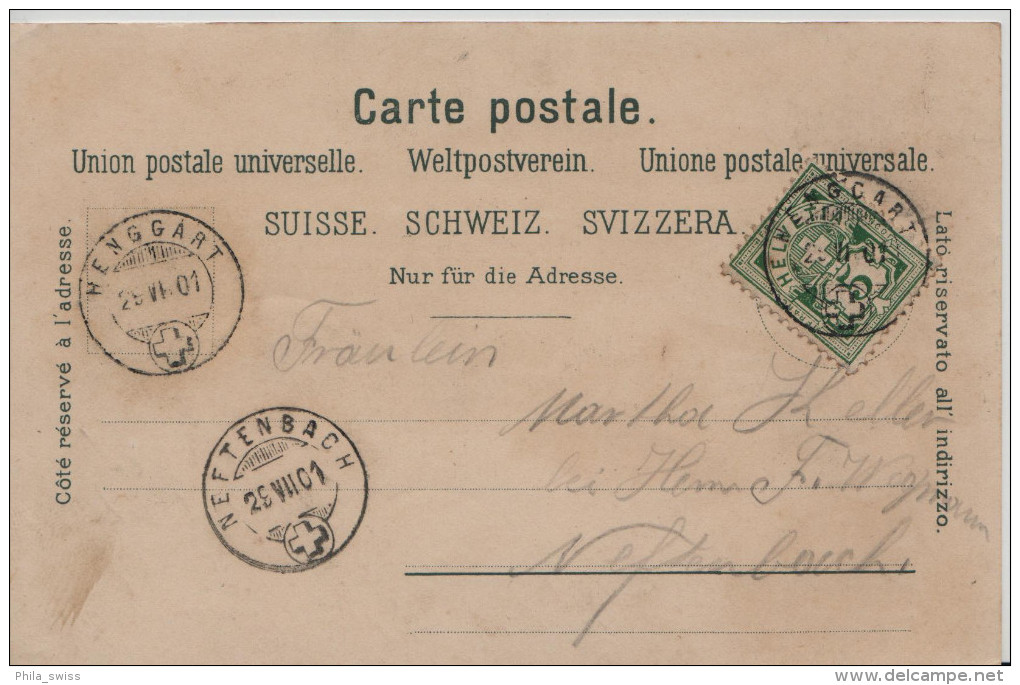 Carte postale.
Union postale universelle. Weltpostverein. Unione postale universale.
SUISSE. SCHWEIZ. SVIZZERA.
Nur für die Adresse.
Côté réservé à l'adresse.
Lato riservato all' indirizzo.
HENGGART
HELVETIA
5
HENGGART
NEFTENBACH
29 VII 01
Fräulein
Martha Keller
bei Herrn F. Wegmann
Neftenbach.
Phila_swiss
delcampe.net